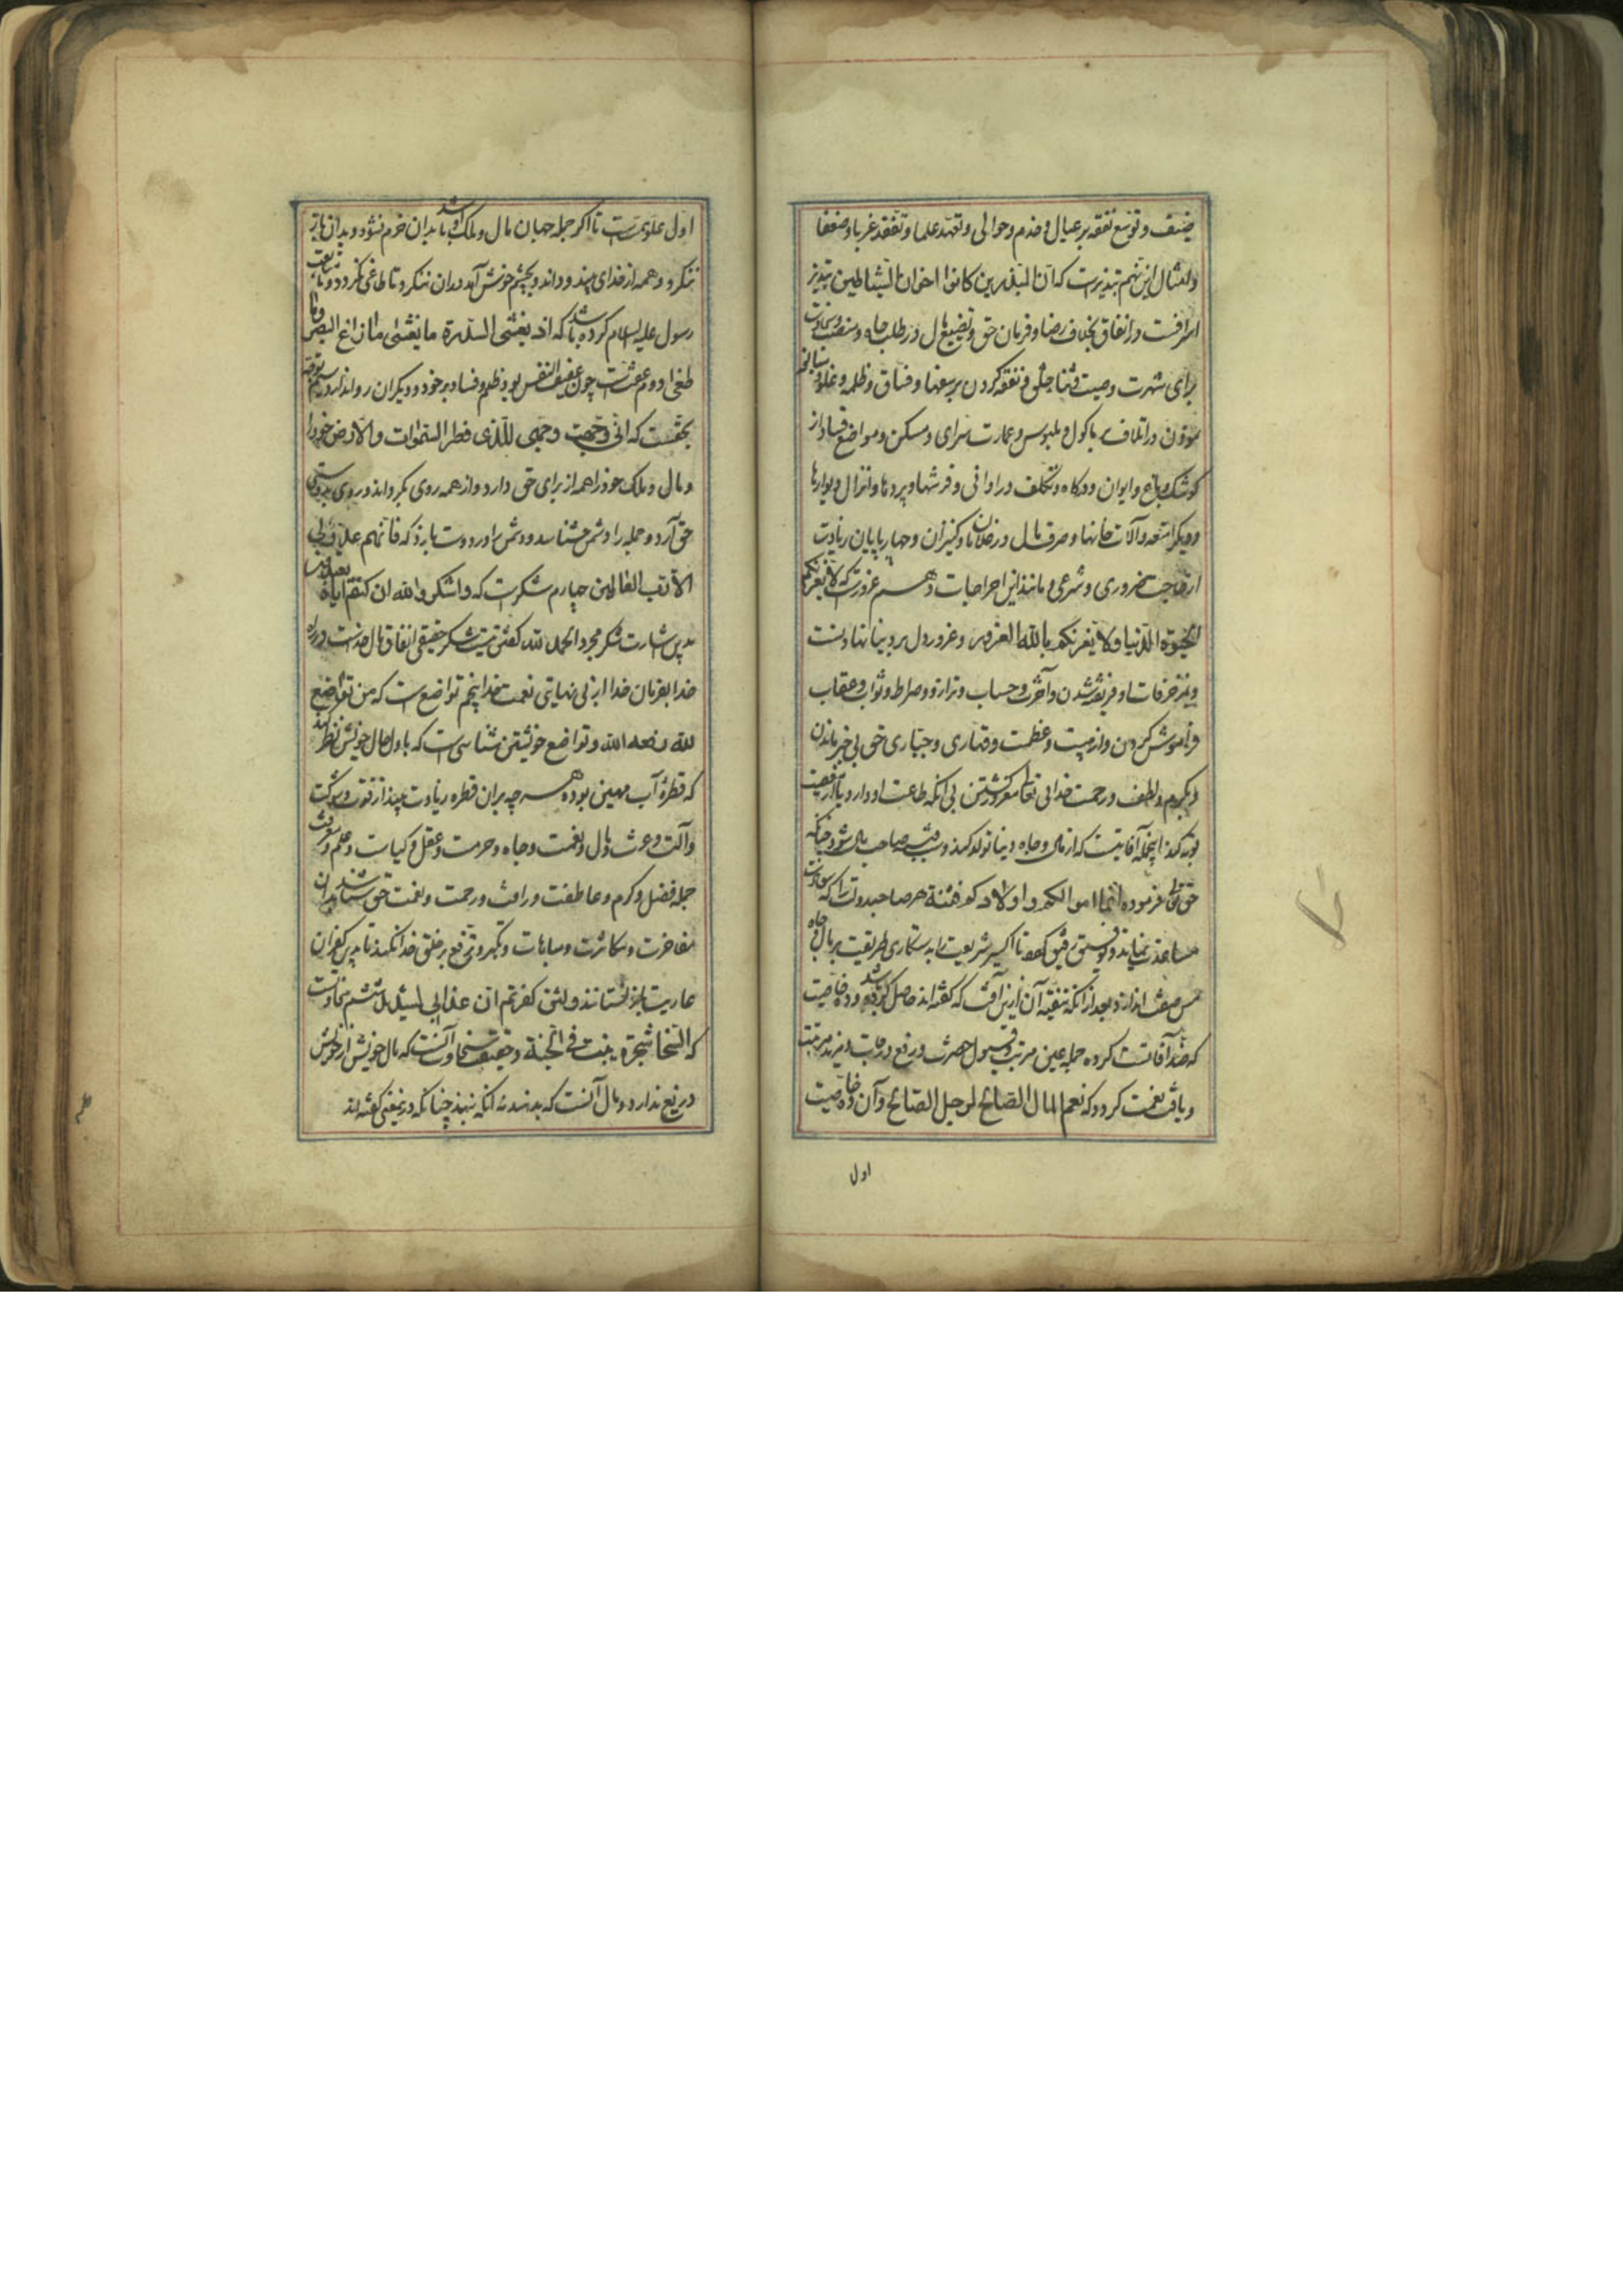 ضیف و توسع نفقه بر عیال و خدم و حوالی و تعهد علما و تفقد غربا و ضعفا
و امثال این نهم تبذیرست که ان المبذرین کانوا اخوان الشیاطین تبذیر
اسرافست در انفاق بخلاف رضا و فرمان حق و تضییع مال در طلب جاه و منصب
برای شهرت وصیت و ثنا خلق و نفقه کردن بر سفها و فساق و ظلمه و غلو
نمودن در اتلاف ماکول و ملبوس و عمارت سرای و مسکن و مواضع فساد از
کوشک و باغ و ایوان و درکاه و تکلف در اوانی و فرشها و پردها و انزال دیوارها
و دیکر امتعه و آلات خانها و صرف مال در غلامان و کنیزان و چهارپایان زیادت
از حاجت ضروری و شرعی و مانند این اخراجات دهم غرورست که لا تغرنکم
الحیوة الدنیا و لا یغرنکم بالله الغرور و غرور دل بر دنیا نهادنست
و بمزخرفات او فریفته شدن و آخرت و حساب و ترازو و صراط و ثواب و عقاب
فراموش کردن و از هیبت و عظمت و قهاری و جباری حق بی خبر ماندن
و بکرم و لطف و رحمت خدای تعالی مغرور کشتن بی آنکه طاعت او دارد یا از معصیت
توبه کند اینجمله آفاتیست که از مال و جاه دنیا تولد کند و سبب صاحب مال شود چنانکه
حق تعالی فرموده انما اموالکم و اولادکم فتنة هر صاحبدولت را که سعادت
مساعدت نماید و توفیق رفیق کردد تا اکسیر شریعت را بدستکاری طریقت بر مال و جاه
مس صفت اندازد بعد از آنکه تنقیه آن ازین آفت که کفته اند حاصل کرده باشد و ده خاصیت
که ضد آفاتست کرده جمله عین مرتبه و قبول حضرت و رفع درجات و مزید مرتبت
و یافت نعمت کردد که نعم المال الصالح لرجل الصالح و آن ده خاصیت
اول
اول علو همتست تا اکر جمله جهان مال و ملک او باشد بدان خرم نشود و بدان باز
ننکرد و همه از خدای بیند و داند و بچشم خوش آمد در آن ننکرد تا طاغی نکردد و متابعت
رسول علیه السلام کرده باشد که اذ یغشی السدرة ما یغشی ما زاغ البصر وما
طغی دوم عفتست چون عفیف النفس بود ظلم و فساد بر خود و دیکران روا ندارد سیم توجه
بحقست که انی وجهت وجهی للذی فطر السموات والارض خود را
و مال و ملک خود را همه از برای حق دارد و از همه روی بکرداند و روی بدوستی
حق آرد و جمله را دشمن شناسد و دشمن را دوست ندارد که فانهم عدو لی
الا رب العالمین چهارم شکرست که واشکروا لله ان کنتم ایاه تعبدون
بدین اشارت شکر مجرد الحمد لله کفتن نیست شکر حقیقی انفاق مال خداست در راه
خدا بفرمان خدا از بی نهایتی نعمت خدا پنجم تواضع است که من تواضع
لله رفعه الله و تواضع خویشتن شناسی است که باول حال خویش نظر کند
که قطرهٔ آب مهین بوده هر چه بران قطره زیادت بیند از قوت و شوکت
و آلت و عدت و مال و نعمت و جاه و حرمت و عقل و کیاست و علم و معرفت
جمله فضل و کرم و عاطفت و رافت و رحمت و نعمت حق شناسد بدان
مفاخرت و مکاثرت و مباهات و تکبر و ترفع بر خلق خدا نکند تا بدین کفران
عاریت باز نستانند ولئن کفرتم ان عذابی لشدید ششم سخاوتست
که السخا شجرة ینبت فی الجنة و حقیقت سخاوت آنست که مال خویش از خویش
دریغ ندارد و مال آنست که بدهد نه آنکه بنهد چنانکه درین معنی کفته اند